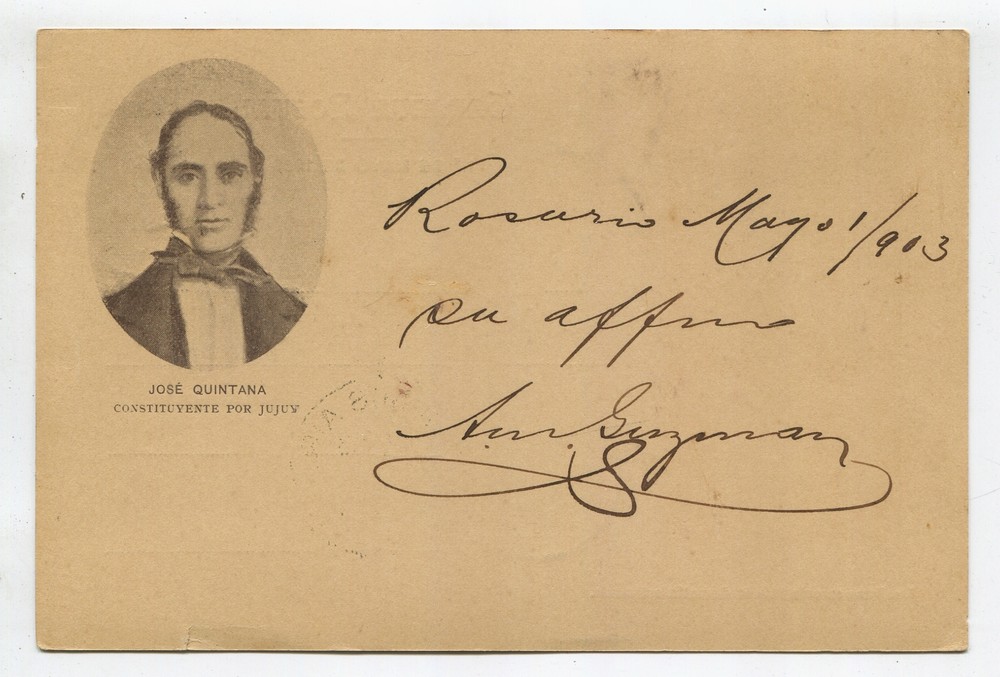 JOSÉ QUINTANA
CONSTITUYENTE POR JUJUY
Rosario Mayo 1/903
su affmo
Am. Guzman